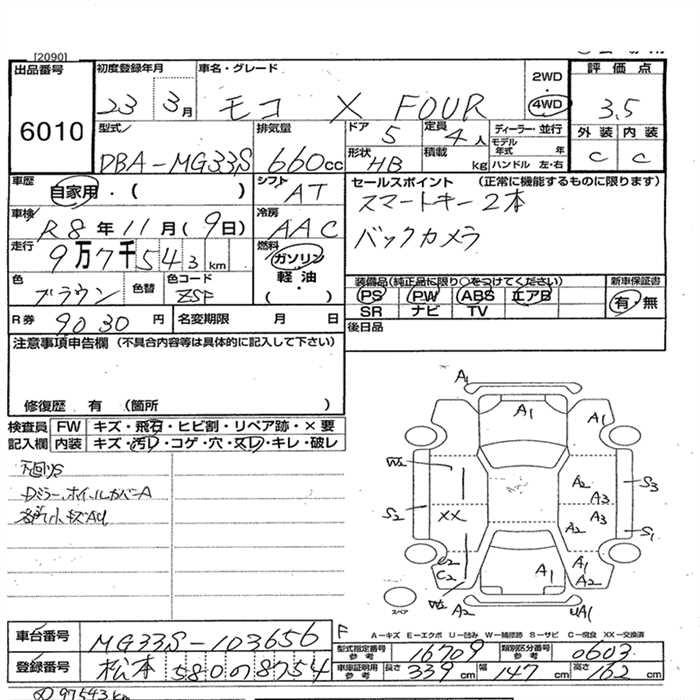 [2090]
出品番号
6010
初度登録年月
23 3月
車名・グレード
モコ X FOUR
2WD
4WD
評価点
3.5
外装 内装
C C
型式
DBA-MG33S
排気量
660cc
ドア
5
定員
4人
形状
HB
積載
kg
ディーラー・並行
モデル年式 年
ハンドル 左・右
車歴
自家用・( )
シフト
AT
セールスポイント (正常に機能するものに限ります)
スマートキー2本
バックカメラ
車検
R8年11月(9日)
冷房
AAC
走行
9万7千543km
燃料
ガソリン
軽・油
( )
色
ブラウン
色替
色コード
ZSF
装備品(純正品に限り○をつけてください)
PS PW ABS エアB
SR ナビ TV
新車保証書
有・無
R券
9030円
名変期限 月 日
後日品
注意事項申告欄(不具合内容等は具体的に記入して下さい)
修復歴 有 (箇所 )
検査員記入欄
FW キズ・飛石・ヒビ割・リペア跡・×要
内装 キズ・汚レ・コゲ・穴・スレ・キレ・破レ
下回りS
Dミラー、ホイールカバーA
各所小キズAU
A1
A1
A1
W2
A2
A3
S3
S2
XX
A3
A2
S1
C2
A1
A1
A2
W2
A2
UA1
スペア
A-キズ E-エクボ U-凹み W-補修跡 S-サビ C-腐食 XX-交換済
車台番号
MG33S-103656
F
型式指定番号 参考
16709
類別区分番号 参考
0603
登録番号
松本 580 の 8754
車庫証明用 参考
長さ 339cm 幅 147cm 高さ 162cm
97543km